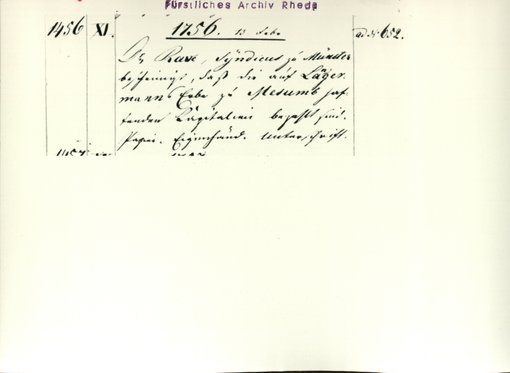 Fürstliches Archiv Rheda
1456 XI. 1756. 13 Febr. ad N. 652.
Dr Rave, Syndicus zu Münster
bescheinigt, daß die auf Läger-
manns Erbe zu Mesumb haf-
tenden Capitalien bezahlt sind.
Papier. Eigenhänd. Unterschrift.
1457